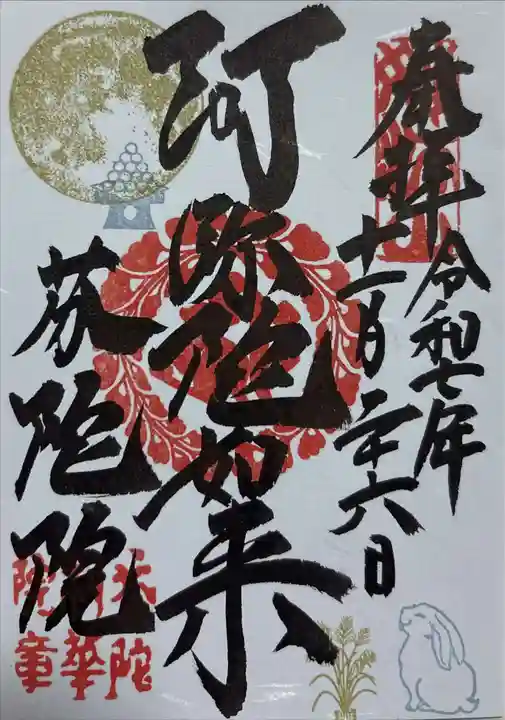 奉拝
令和七年
十一月二十六日
阿弥陀如来
芬陀院